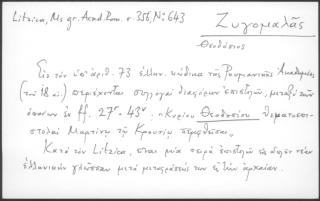 Litzica, Ms gr. Acad Rom. σ. 356, Νο 643
Ζυγομαλᾶς
Θεοδόσιος
Εἰς τὸν ὑπ' ἀριθ. 73 ἑλλην. κώδικα τῆς Ρουμανικῆς Ἀκαδημίας
(τοῦ 18 αἰ.) περιέχονται συλλογαὶ διαφόρων ἐπιστολῶν, μεταξὺ τῶν
ὁποίων ἐν ff. 27r - 43v. "Κυρίου Θεοδοσίου
Μαρτίνῳ τῷ Κρουσίῳ
Κατὰ τὸν Litzica, εἶναι μία σειρὰ ἐπιστολῶν εἰς νέαν
ἑλληνικὴν γλῶσσαν μετὰ μεταφράσεώς των εἰς τὴν ἀρχαίαν.